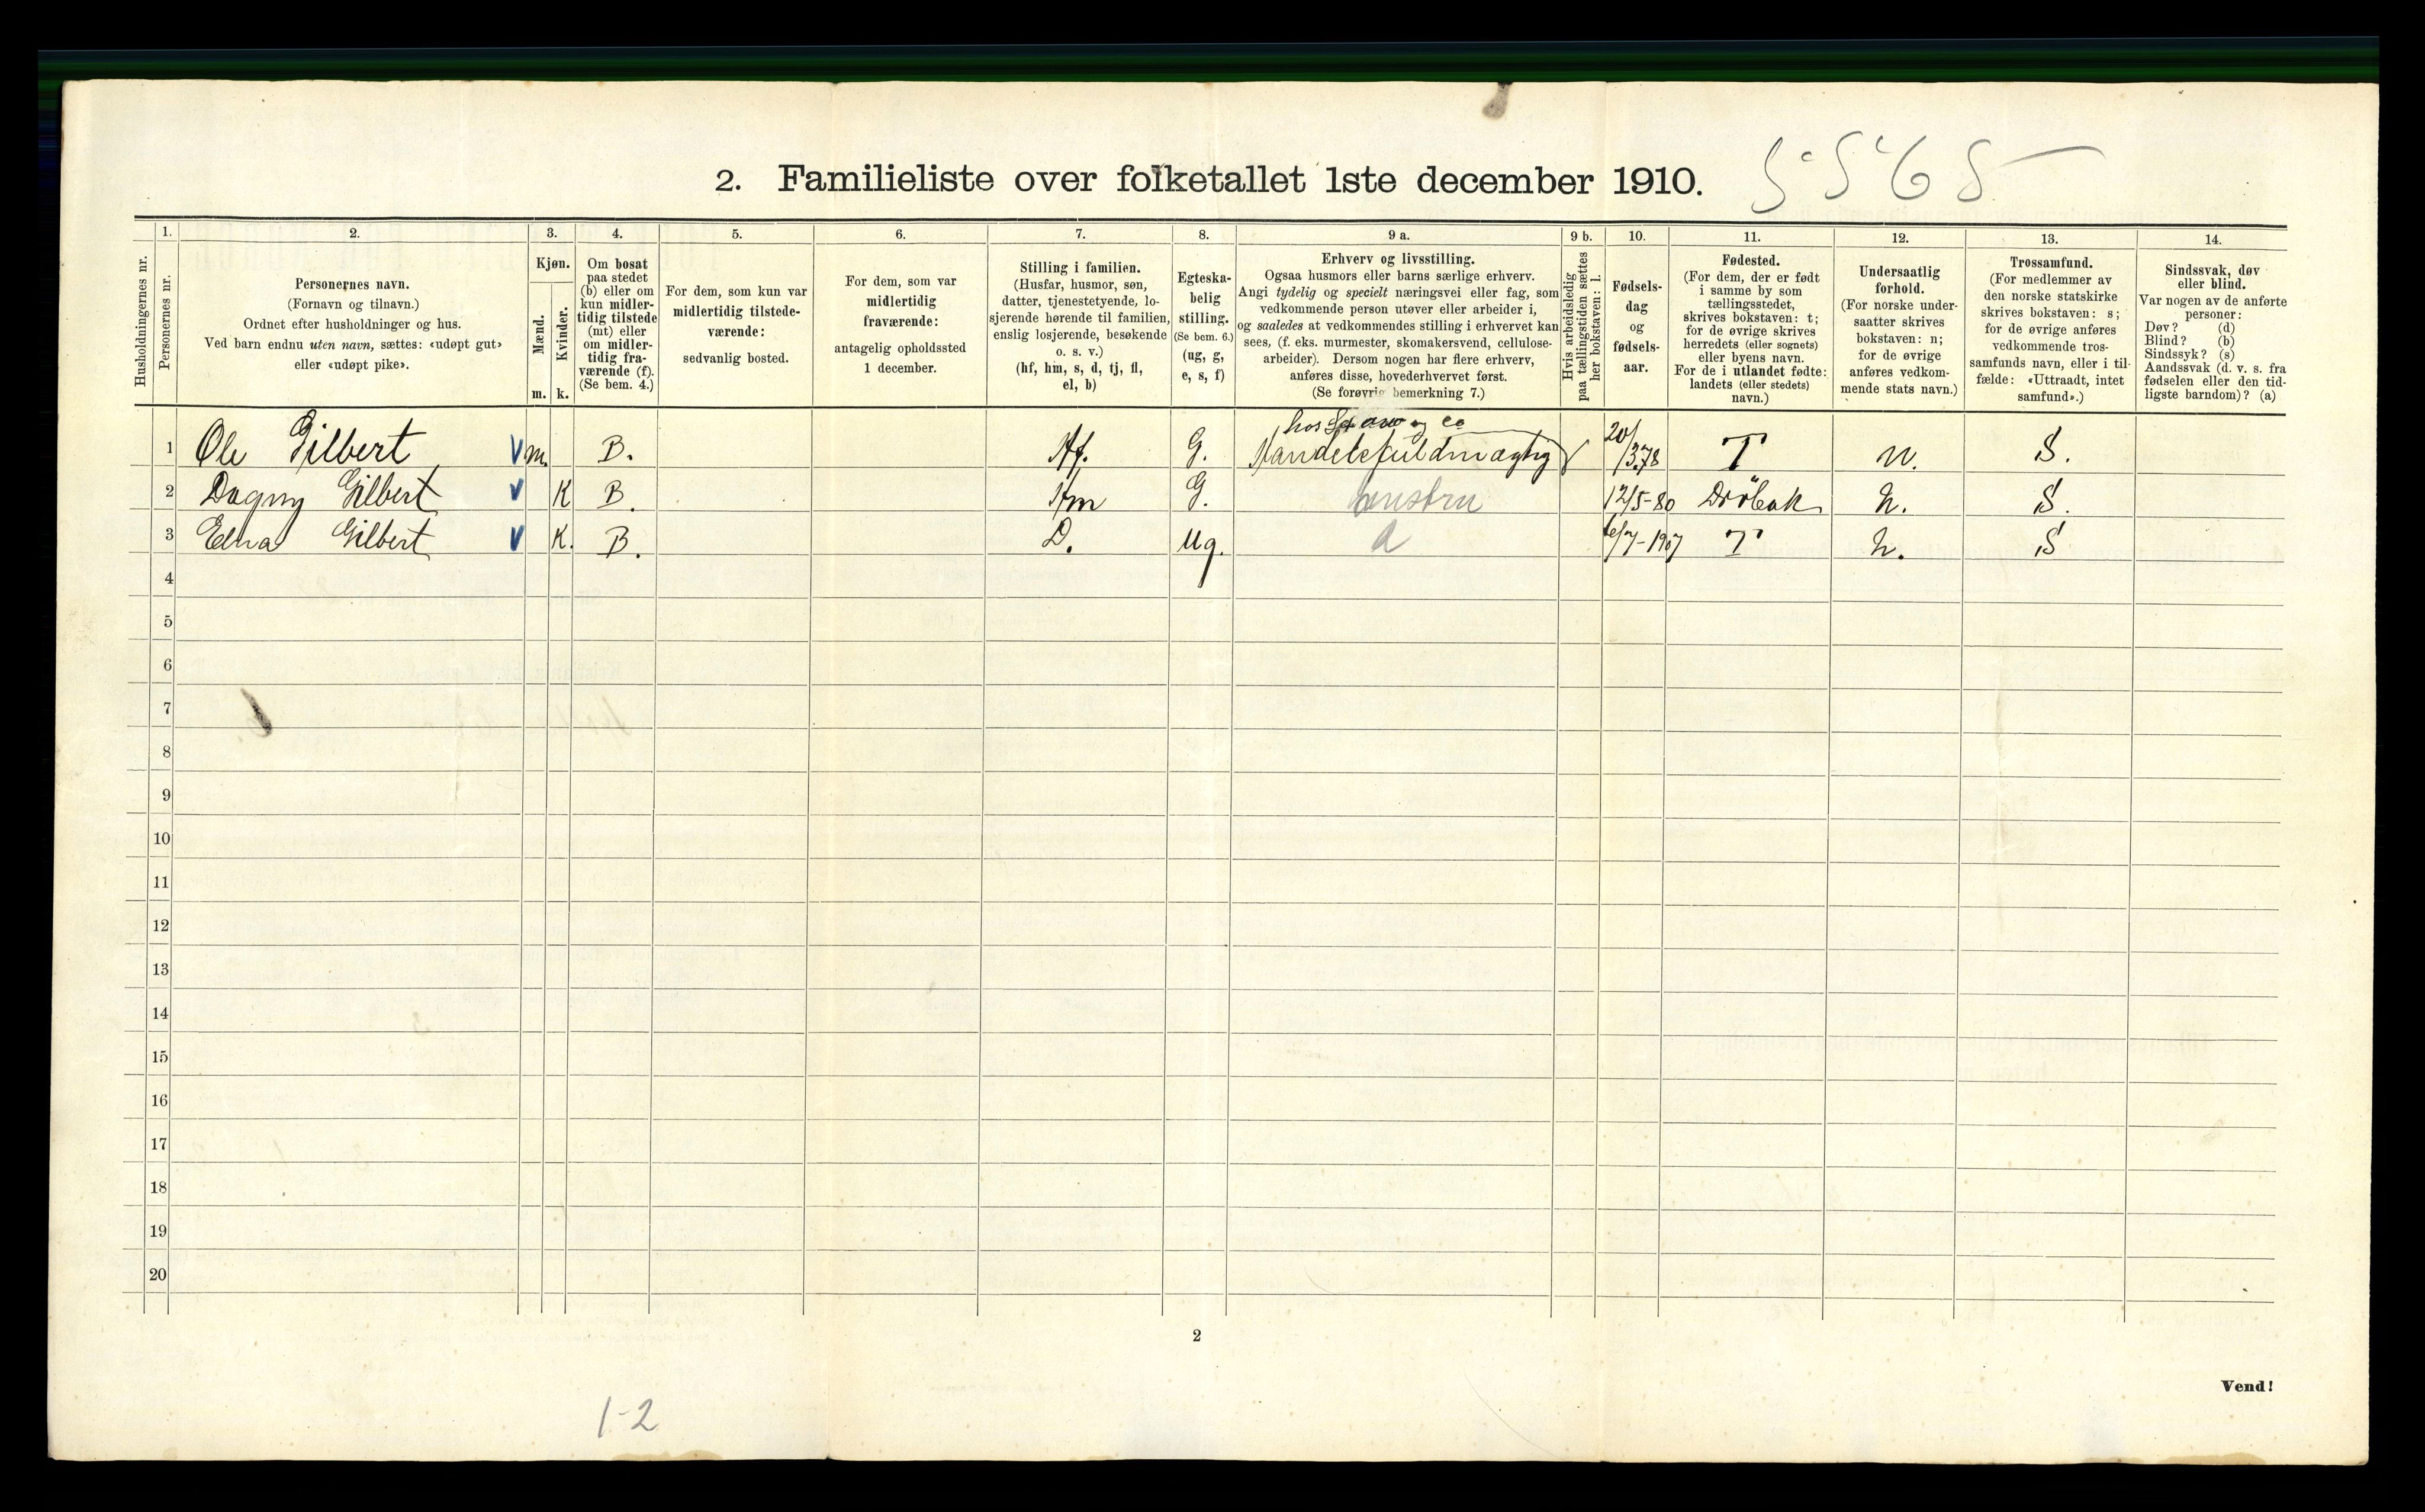 2. Familieliste over folketallet 1ste december 1910.
5565
Husholdningernes nr.
1.
Personernes nr.
2.
Personernes navn.
(Fornavn og tilnavn.)
Ordnet efter husholdninger og hus.
Ved barn endnu uten navn, sættes: «udøpt gut»
eller «udøpt pike».
3.
Kjøn.
Mænd.
m.
Kvinder.
k.
4.
Om bosat
paa stedet
(b) eller om
kun midler-
tidig tilstede
(mt) eller
om midler-
tidig fra-
værende (f).
(Se bem. 4.)
5.
For dem, som kun var
midlertidig tilstede-
værende:
sedvanlig bosted.
6.
For dem, som var
midlertidig
fraværende:
antagelig opholdssted
1 december.
7.
Stilling i familien.
(Husfar, husmor, søn,
datter, tjenestetyende, lo-
sjerende hørende til familien,
enslig losjerende, besøkende
o. s. v.)
(hf, hm, s, d, tj, fl,
el, b)
8.
Egteska-
belig
stilling.
(Se bem. 6.)
(ug, g,
e, s, f)
9 a.
Erhverv og livsstilling.
Ogsaa husmors eller barns særlige erhverv.
Angi tydelig og specielt næringsvei eller fag, som
vedkommende person utøver eller arbeider i,
og saaledes at vedkommendes stilling i erhvervet kan
sees, (f. eks. murmester, skomakersvend, cellulose-
arbeider). Dersom nogen har flere erhverv,
anføres disse, hovederhvervet først.
(Se forøvrig bemerkning 7.)
9 b.
Hvis arbeidsledig
paa tællingstiden sættes
her bokstaven: l.
10.
Fødsels-
dag
og
fødsels-
aar.
11.
Fødested.
(For dem, der er født
i samme by som
tællingsstedet,
skrives bokstaven: t;
for de øvrige skrives
herredets (eller sognets)
eller byens navn.
For de i utlandet fødte:
landets (eller stedets)
navn.)
12.
Undersaatlig
forhold.
(For norske under-
saatter skrives
bokstaven: n;
for de øvrige
anføres vedkom-
mende stats navn.)
13.
Trossamfund.
(For medlemmer av
den norske statskirke
skrives bokstaven: s;
for de øvrige anføres
vedkommende tros-
samfunds navn, eller i til-
fælde: «Uttraadt, intet
samfund».)
14.
Sindssvak, døv
eller blind.
Var nogen av de anførte
personer:
Døv? (d)
Blind? (b)
Sindssyk? (s)
Aandssvak (d. v. s. fra
fødselen eller den tid-
ligste barndom)? (a)
hos og co
1 Ole Gilbert V m. B. Hf. G. Handelsfuldmægtig 20/3 78 T n. S.
2 Dagny Gilbert V K B. Hm G. hustru 12/5-80 Dröbak n. S.
3 Edna Gilbert V K. B. D. Ug. a 6/7-1907 T n. S
4
5
6
7
8
9
10
11
12
13
14
15
16
17
18
19
20
2
Vend!
1-2